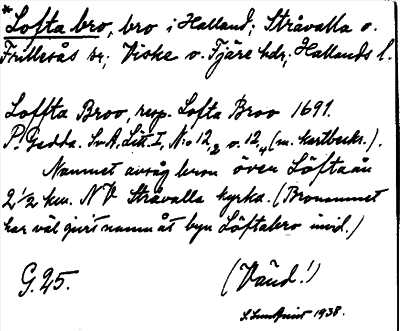 * Lofta bro, bro i Halland; Stråvalla o.
Frillesås sr; Viske o. Fjäre hdr; Hallands l.
Loffta Broo, resp. Lofta Broo 1691.
P. Gedda. SvA. Litt. I, No 12, 2 o. 12, 4 (m. kartbeskr.).
Namnet avsåg bron över Löftaån
2 1/2 km. NV Stråvalla kyrka. (Bronamnet
har väl givit namn åt byn Löftabro invid.)
G. 25.
(Vänd!)
S. Sundqvist 1938.